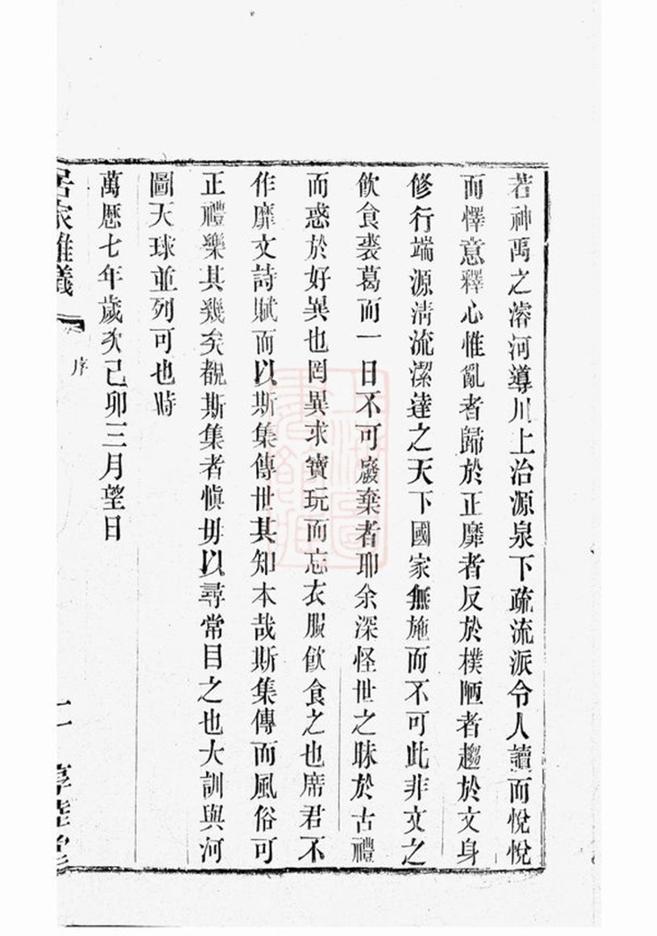 若神禹之濬河導川上治源泉下疏流派令人讀而悅悅
而懌意釋心惟亂者歸於正靡者反於樸陋者趨於文身
修行端源清流潔達之天下國家無施而不可此非文之
飲食裘葛而一日不可廢棄者耶余深怪世之昧於古禮
而惑於好異也罔異求寶玩而忘衣服飲食之也席君不
作靡文詩賦而以斯集傳世其知本哉斯集傳而風俗可
正禮樂其幾矣覩斯集者慎毋以尋常目之也大訓與河
圖天球並列可也時
萬曆七年歲次己卯三月望日
居家雜儀
序
二